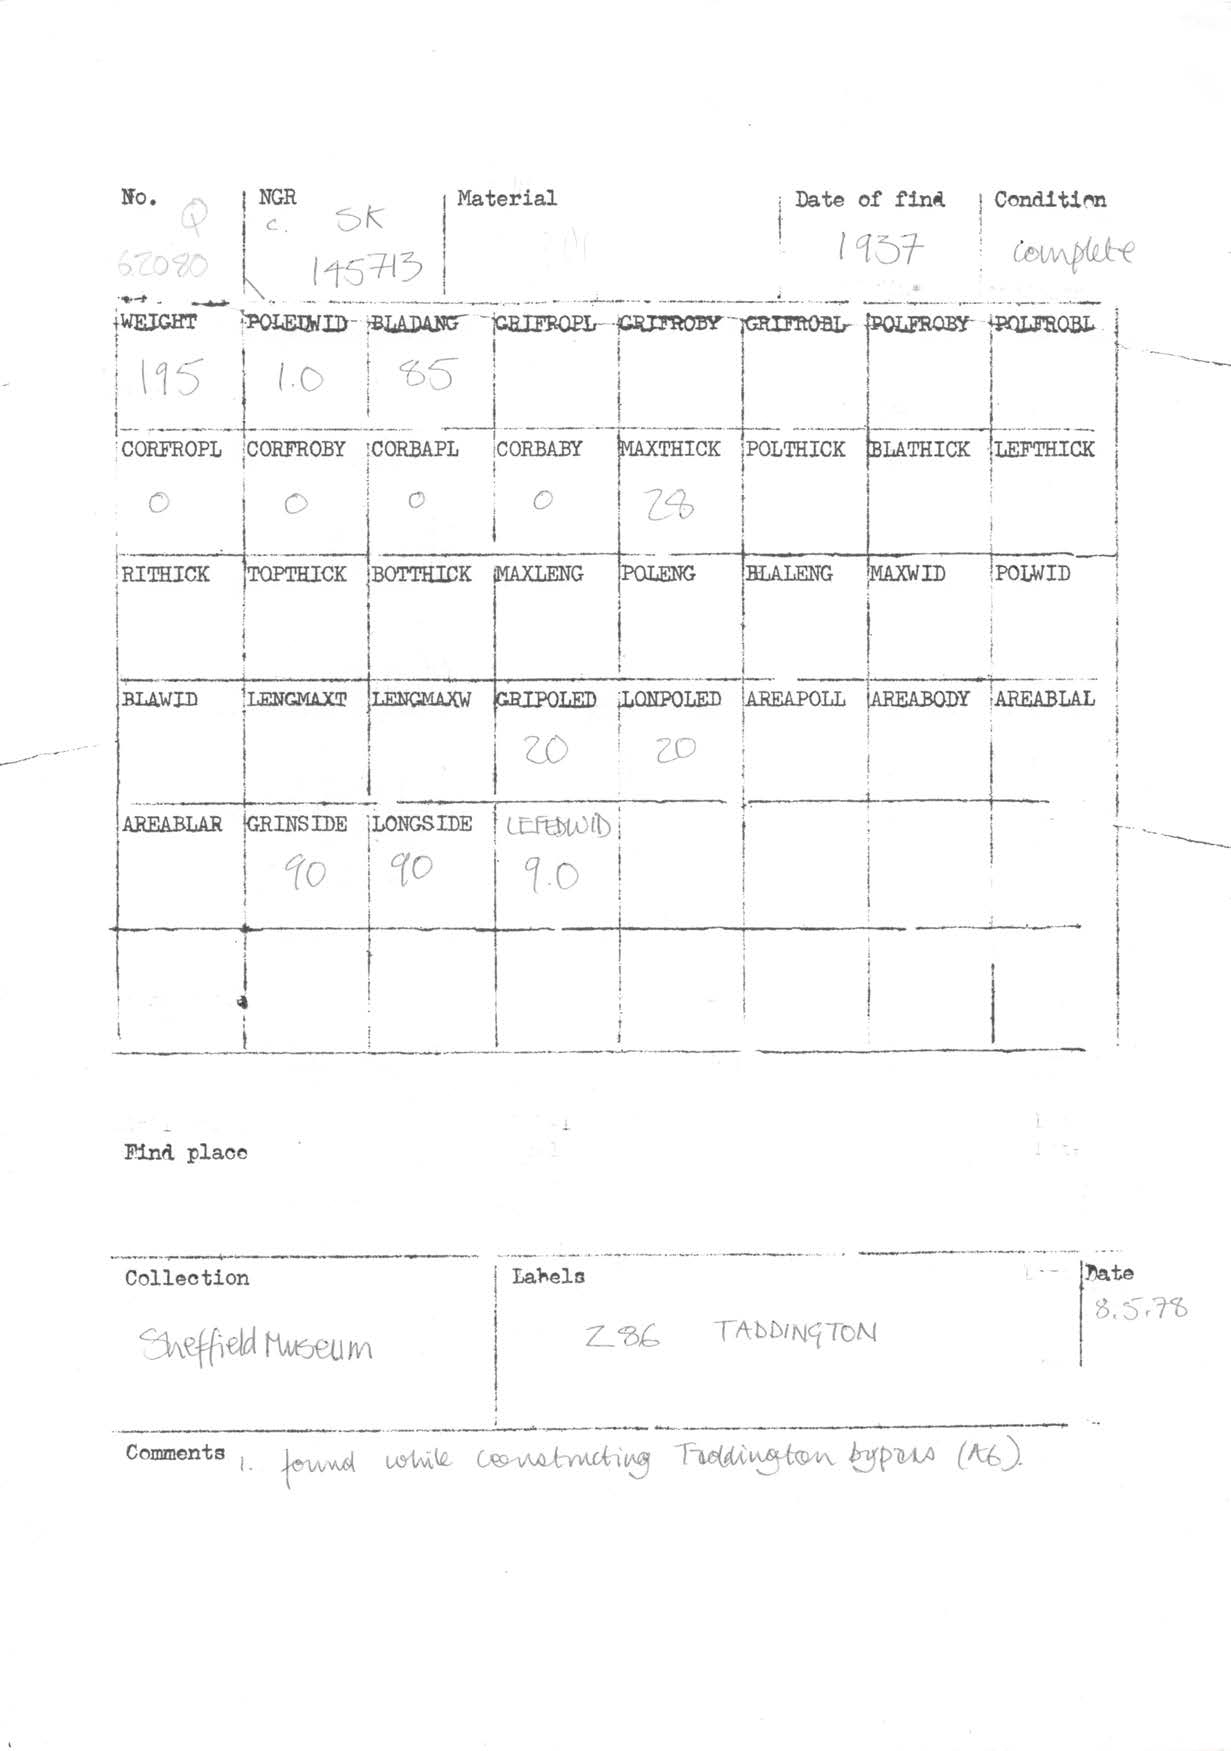 No. NGR Material Date of find Condition
Q c. SK 1937 complete
62080 145713
WEIGHT POLEDWID BLADANG GRIFROPL GRIFROBY GRIFROBL POLFROBY POLFROBL
195 1.0 85
CORFROPL CORFROBY CORBAPL CORBABY MAXTHICK POLTHICK BLATHICK LEFTHICK
0 0 0 0 28
RITHICK TOPTHICK BOTTHICK MAXLENG POLENG BLALENG MAXWID POLWID
BLAWID LENGMAXT LENGMAXW GRIPOLED LONPOLED AREAPOLL AREABODY AREABLAL
20 20
AREABLAR GRINSIDE LONGSIDE LEFEDWID
90 90 9.0
Find place
Collection Labels Date
8.5.78
Sheffield Museum Z 86 TADDINGTON
Comments 1. found while constructing Taddington bypass (A6).